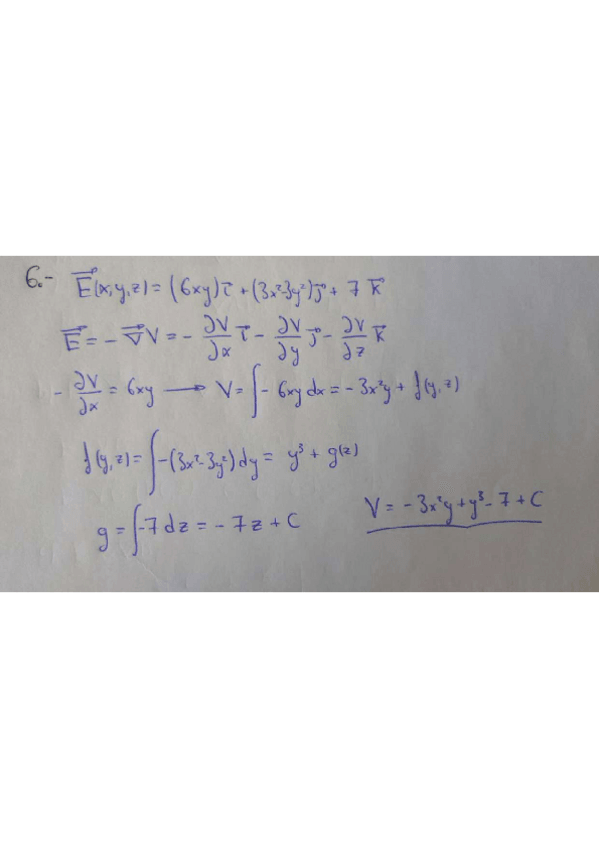 6.- E⃗(x,y,z) = (6xy) i⃗ + (3x²-3y²) j⃗ + 7 k⃗
E⃗ = - ∇⃗V = - ∂V/∂x i⃗ - ∂V/∂y j⃗ - ∂V/∂z k⃗
- ∂V/∂x = 6xy → V = ∫ - 6xy dx = - 3x²y + f(y,z)
f(y,z) = ∫ -(3x²-3y²) dy = y³ + g(z)
g = ∫ -7 dz = - 7z + C
V = - 3x²y + y³ - 7 + C